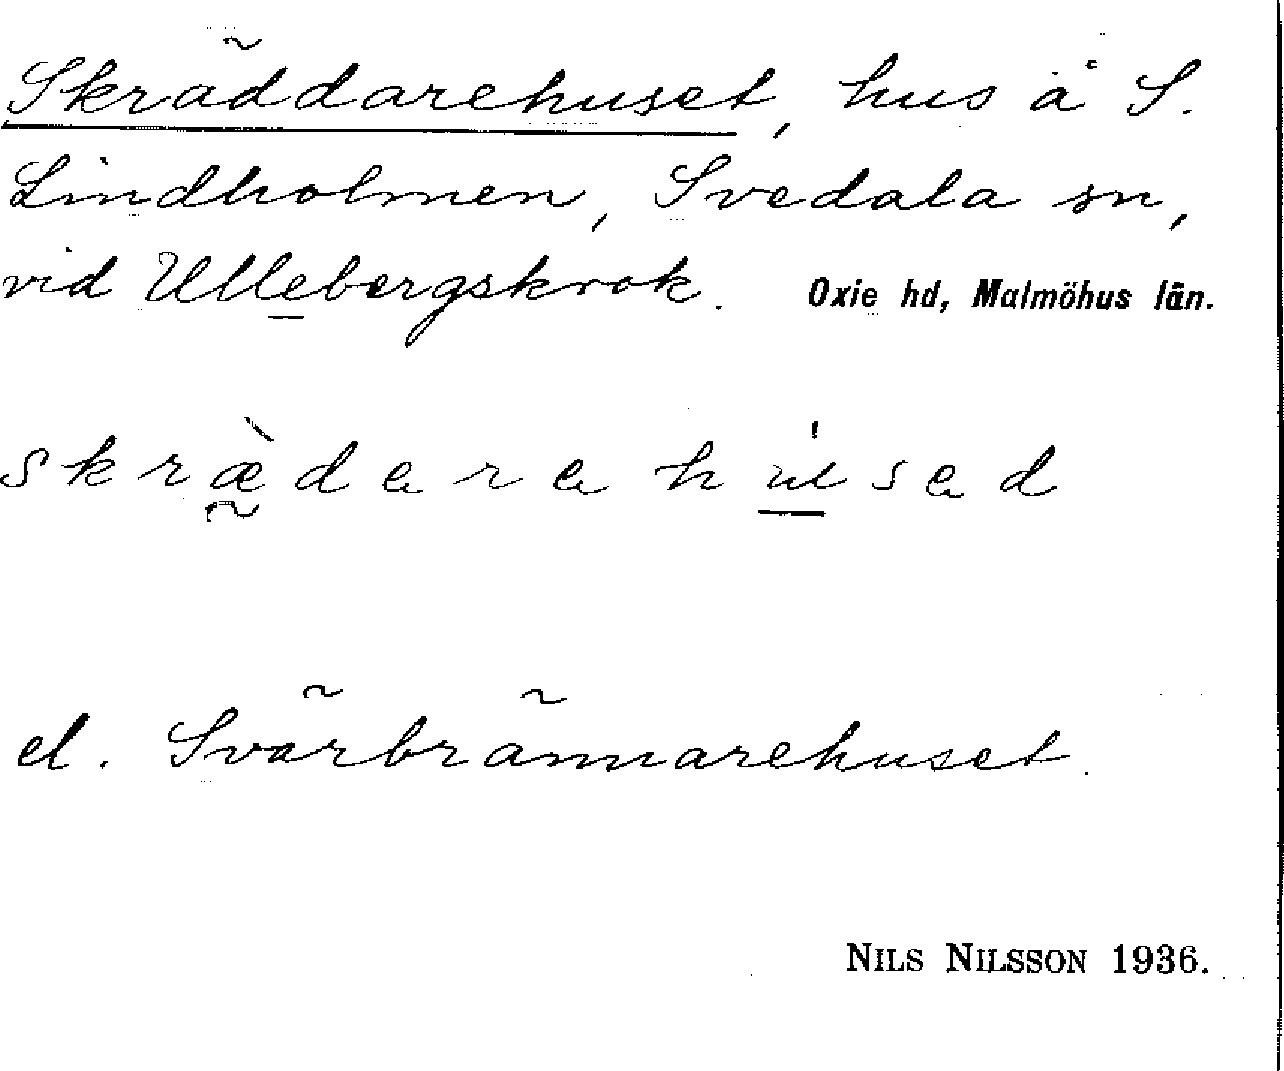 Skräddarehuset, hus å S.
Lindholmen, Svedala sn,
vid Ullebergskrok. Oxie hd, Malmöhus län.
skræ̀derehu̍sed
el. Svärbrännarehuset.
NILS NILSSON 1936.